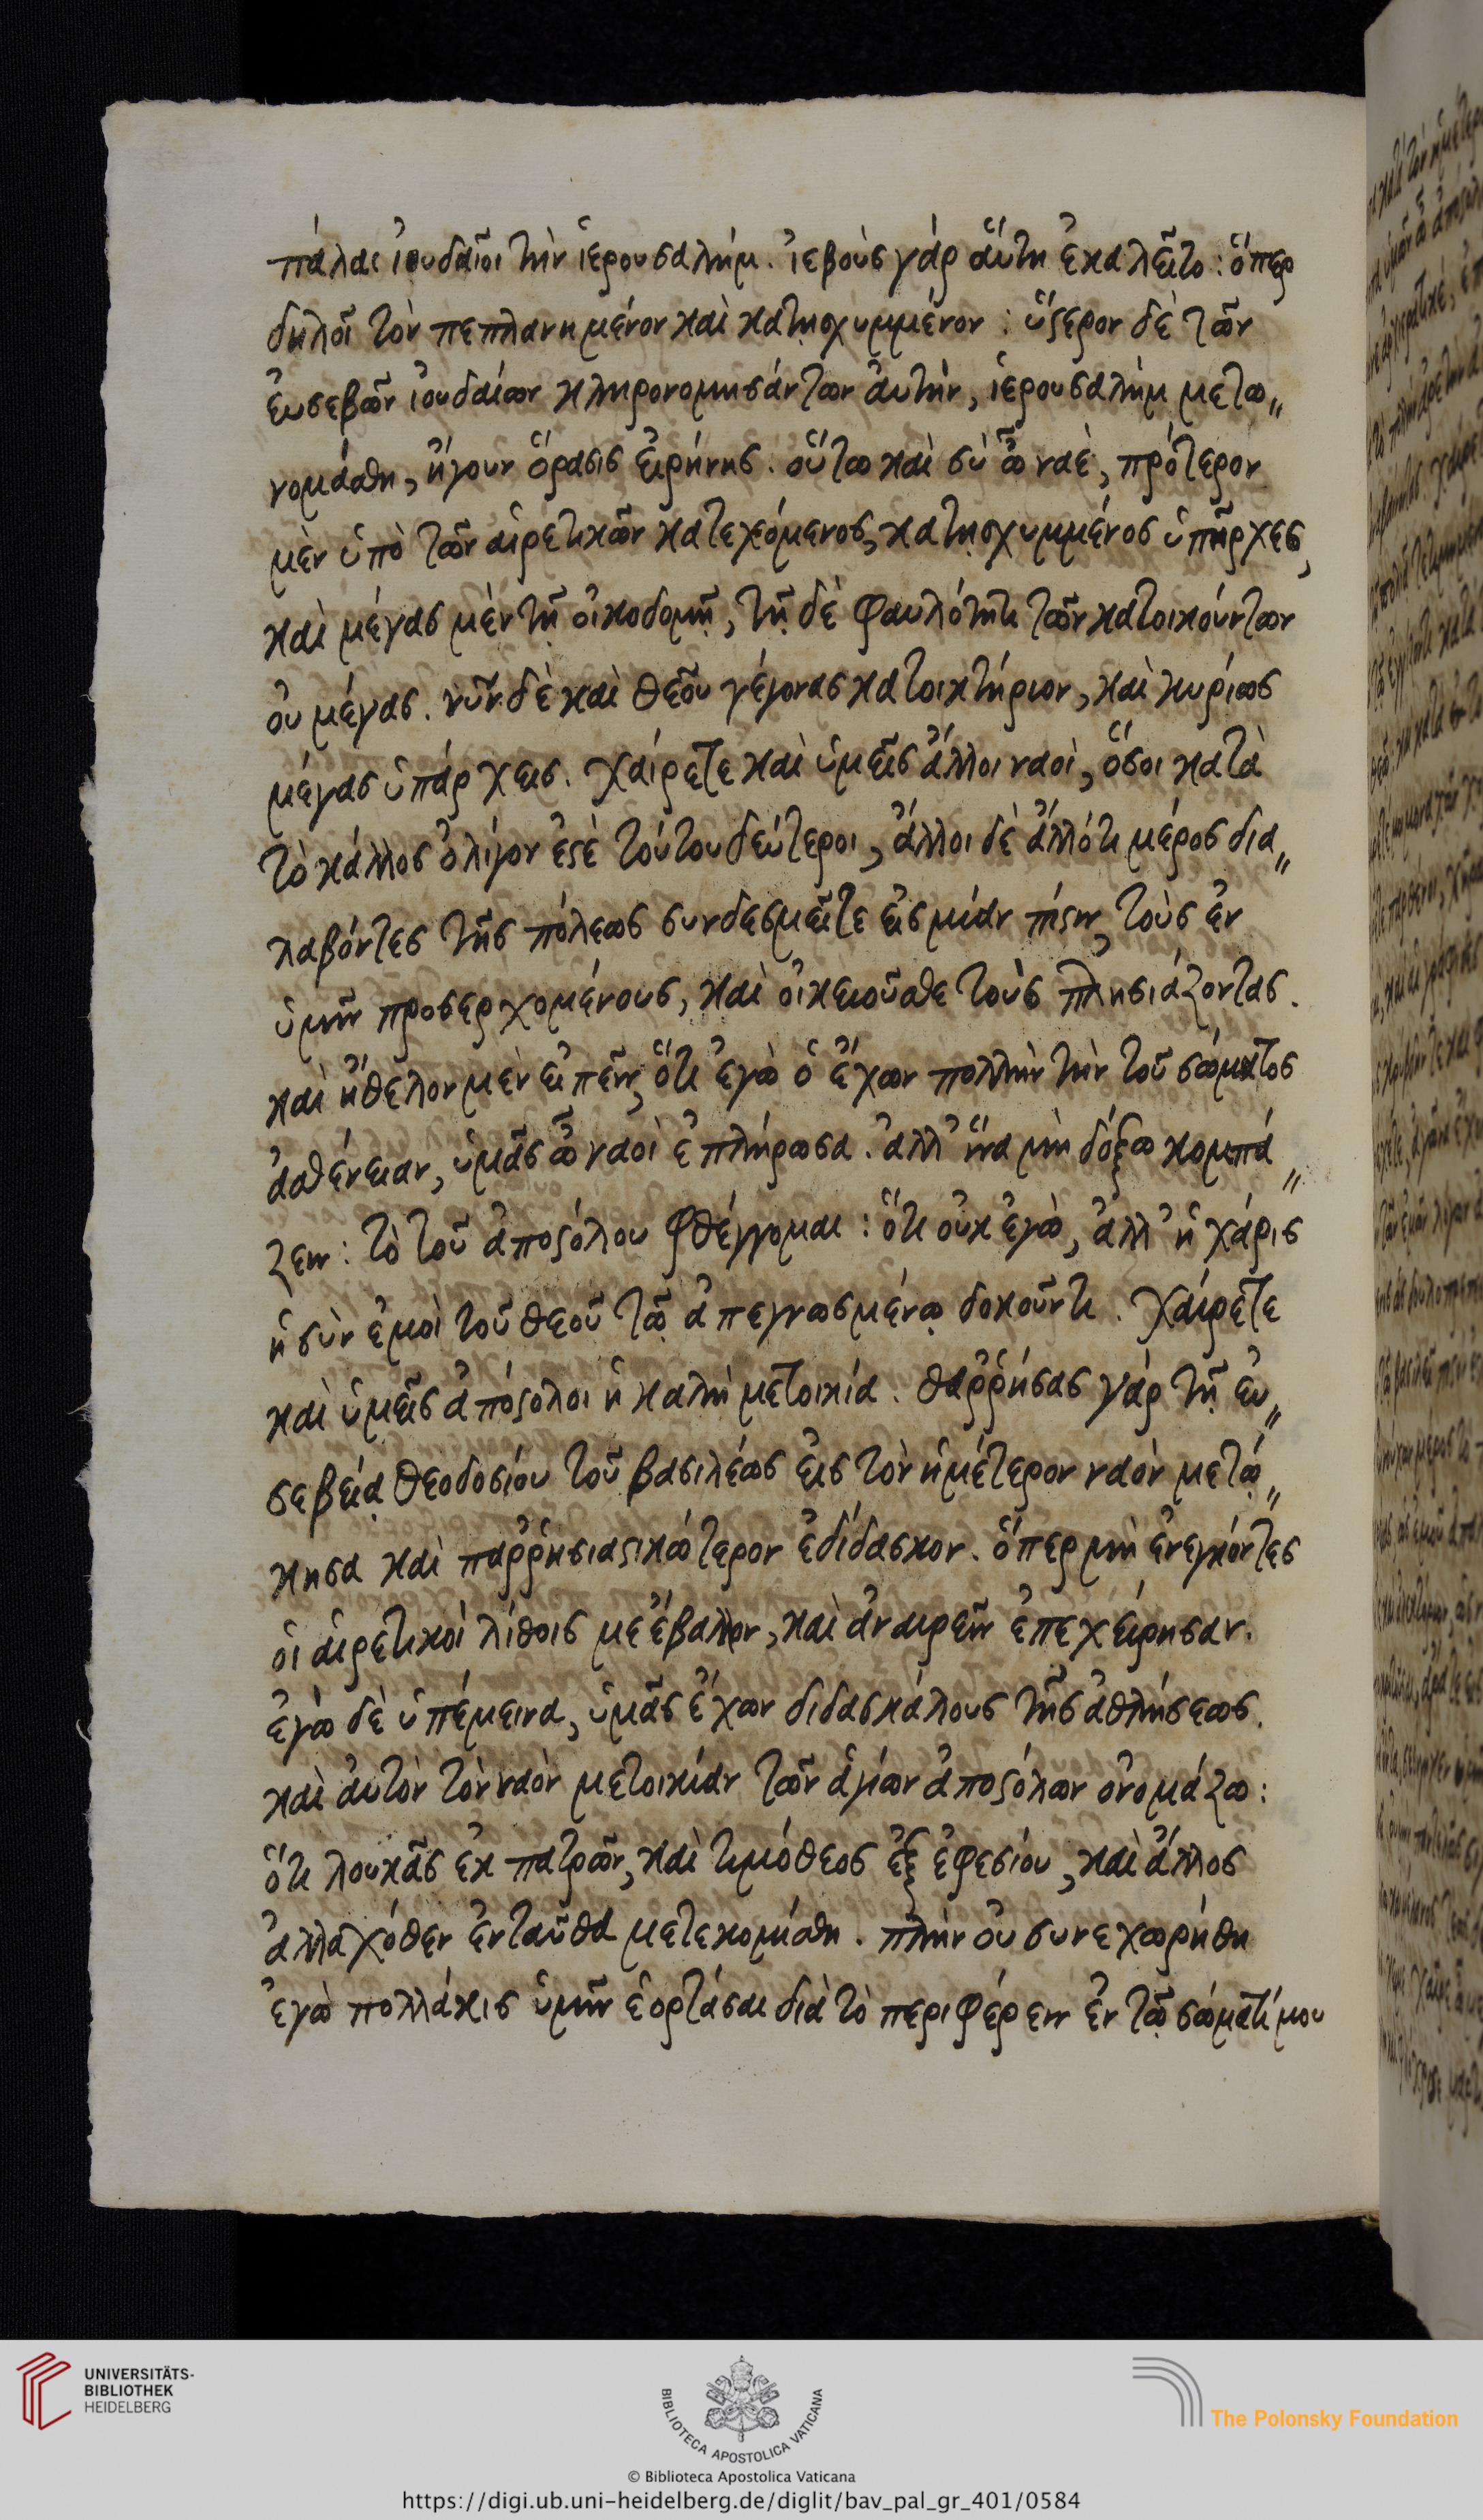 πάλαι ἰουδαῖοι τὴν ἱερουσαλήμ. ἰεβοὺς γάρ αὕτη ἐκαλεῖτο: ὅπερ
δηλοῖ τὸν πεπλανημένον καὶ κατῃσχυμμένον: ὕστερον δὲ τῶν
εὐσεβῶν ἰουδαίων κληρονομησάντων αὐτὴν, ἱερουσαλήμ μετω„
νομάσθη, ἤγουν ὅρασις εἰρήνης. οὕτω καὶ σὺ ὦ ναὲ, πρότερον
μὲν ὑπὸ τῶν αἱρετικῶν κατεχόμενος, κατῃσχυμμένος ὑπῆρχες,
καὶ μέγας μὲν τῇ οἰκοδομῇ, τῇ δὲ φαυλότητι τῶν κατοικούντων
οὐ μέγας. νῦν δὲ καὶ θεοῦ γέγονας κατοικτήριον, καὶ κυρίως
μέγας ὑπάρχεις. χαίρετε καὶ ὑμεῖς ἄλλοι ναοὶ, ὅσοι κατὰ
τὸ κάλλος ὀλίγον ἐστὲ τούτου δεύτεροι, ἄλλοι δὲ ἄλλότι μέρος δια„
λαβόντες τῆς πόλεως συνδεσμεῖτε εἰς μίαν πίστιν, τοὺς ἐν
ὑμῖν προσερχομένους, καὶ οἰκειοῦσθε τοὺς πλησιάζοντας.
καὶ ἤθελον μὲν εἰπεῖν, ὅτι ἐγὼ ὁ ἔχων πολλὴν τὴν τοῦ σώματος
ἀσθένειαν, ὑμᾶς ὦ ναοὶ ἐπλήρωσα. ἀλλ' ἵνα μὴ δόξω κομπά„
ζειν: τὸ τοῦ ἀποστόλου φθέγγομαι: ὅτι οὐκ ἐγὼ, ἀλλ' ἡ χάρις
ἡ σὺν ἐμοὶ τοῦ θεοῦ τῷ ἀπεγνωσμένῳ δοκοῦντι. χαίρετε
καὶ ὑμεῖς ἀπόστολοι ἡ καλὴ μετοικία. θαῤῥήσας γάρ τῇ εὐ„
σεβείᾳ θεοδοσίου τοῦ βασιλέως εἰς τὸν ἡμέτερον ναὸν μετῴ„
κησα καὶ παῤῥησιαστικώτερον ἐδίδασκον. ὅπερ μὴ ἐνεγκόντες
οἱ αἱρετικοί λίθοις με ἔβαλλον, καὶ ἀναιρεῖν ἐπεχείρησαν.
ἐγὼ δὲ ὑπέμεινα, ὑμᾶς ἔχων διδασκάλους τῆς ἀθλήσεως.
καὶ αὐτὸν τὸν ναὸν μετοικίαν τῶν ἁγίων ἀποστόλων ὀνομάζω:
ὅτι λουκᾶς ἐκ πατρῶν, καὶ τιμόθεος ἐξ ἐφεσίου, καὶ ἄλλος
ἀλλαχόθεν ἐνταῦθα μετεκομίσθη. πλὴν οὐ συνεχωρήθη
ἐγὼ πολλάκις ὑμῖν ἑορτάσαι διὰ τὸ περιφέρειν ἐν τῷ σώματί μου
UNIVERSITÄTS-
BIBLIOTHEK
HEIDELBERG
BIBLIOTECA APOSTOLICA VATICANA
The Polonsky Foundation
© Biblioteca Apostolica Vaticana
https://digi.ub.uni-heidelberg.de/diglit/bav_pal_gr_401/0584